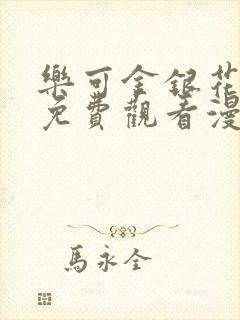 樂可金銀花
免費觀看漫
馬永全